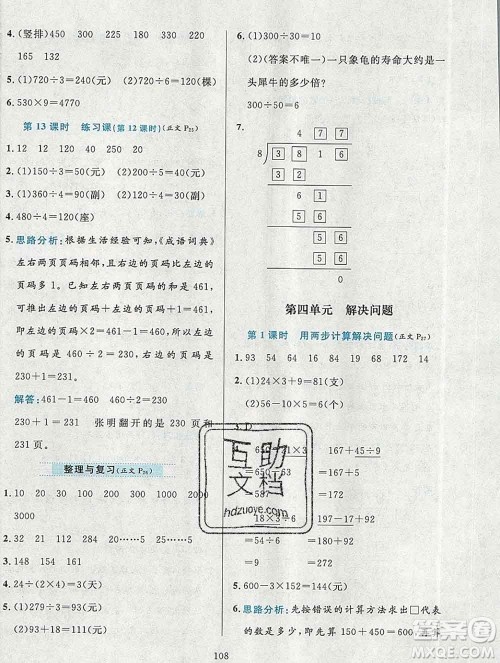 4. (竖排)450 300 220 230 132
165 132
5. (1)720÷3=240(元)
(2)720÷6=120(棵)
6. 530×9=4770
第 13 课时 练习课(第 12 课时)(正文 P₂₅)
1. 12 12 120 20 250 20
2. (1)150÷3=50(元) (2)150÷5=30(元)
3. (1)360÷4=90(副) (2)360÷9=40(副)
4. 480÷4=120(座)
5. 思路分析:根据生活经验可知,《成语词典》
左右两页页码相邻,且右边的页码比左边
的页码多 1。已知左右两页页码和是 461,可
推出左边的页码+左边的页码+1=461,
可推出左边的页码+左边的页码=
461-1=460,即左边的页码×2=460,左
边的页码是 460÷2=230,右边的页码是
230+1=231。
解答:461-1=460 460÷2=230
230+1=231 张明翻开的是 230 页和
231 页。
整理与复习(正文 P₂₆)
1. 20 70 150 90 1000 15
2. 32 30 200 22……5 25……5
3. 148 154 161
4. 24÷(2×4)=3(天)
5. (1)279÷3=93(元)
(2)93+18=111(元)
6. (1)300÷5=60
(2)(答案不唯一)一只象龟的寿命大约是一
头犀牛的多少倍?
300÷50=6
7.
4 7 7
8 3 8 1 6
3 2
6 1
5 6
5 6
5 6
0
第四单元 解决问题
第 1 课时 用两步计算解决问题(正文 P₂₇)
1. 93 54 94 19 58 68 172 14
2. (1)24×3+9=81(支)
(2)16×2-10=22(个)
3. D
4. 650-21×3 167+45÷9
=650-63 =167+5
=587 =172
18×3÷6 197-18×10
=54÷6 =197-180
=9 =17
5. 600-3×152=144(元)
6. 思路分析:先按错误的计算方法求出□代表
的数是多少,即先算 150+450=600,去掉
互助
文档
hdzuoye.com
108